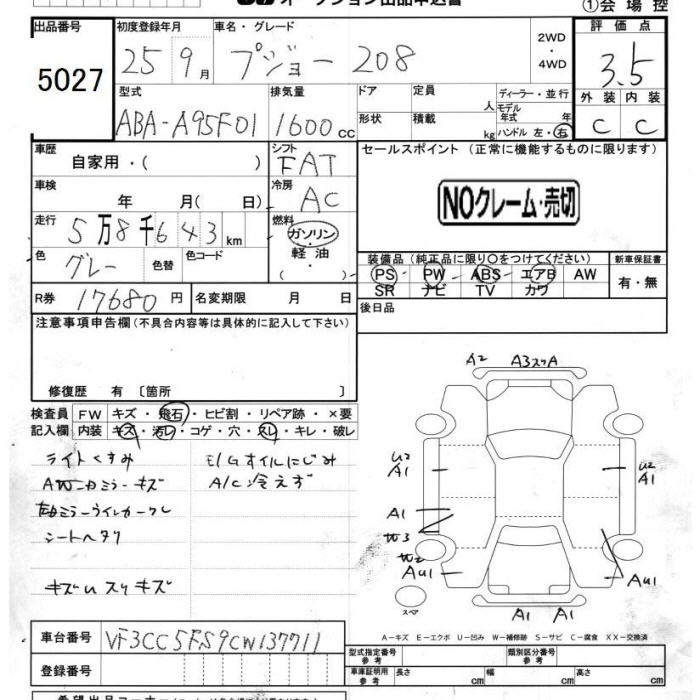 オークション出品申込書
①会場控
出品番号
5027
初度登録年月
25 9月
車名・グレード
プジョー 208
2WD
・
4WD
評価点
3.5
外装 内装
C C
型式
ABA-A95F01
排気量
1600cc
ドア
形状
定員
人
積載
kg
ディーラー・並行
モデル年式 年
ハンドル 左・右
車歴
自家用・( )
シフト
FAT
セールスポイント (正常に機能するものに限ります)
NOクレーム・売切
車検
年 月(日)
冷房
AC
走行
5万8千643km
燃料
ガソリン・
軽油・
( )
色
グレー
色替
色コード
装備品 (純正品に限り○をつけてください)
PS PW ABS エアB AW
SR ナビ TV カワ
新車保証書
有・無
R券 17680円
名変期限 月 日
後日品
注意事項申告欄 (不具合内容等は具体的に記入して下さい)
修復歴 有 〔箇所 〕
検査員記入欄
FW キズ・飛石・ヒビ割・リペア跡・×要
内装 キズ・汚レ・コゲ・穴・スレ・キレ・破レ
ライトくすみ
E/Gオイルにじみ
A/C冷えず
シートヘタリ
A2 A3スリA
U2
A1
U2
A1
A1
W3
W2
AU1
AU1
スペア
A1 A1
A-キズ E-エクボ U-凹み W-補修跡 S-サビ C-腐食 XX-交換済
車台番号 VF3CC5FS9CW137711
登録番号
型式指定番号
参考
類別区分番号
参考
車庫証明用
参考
長さ cm 幅 cm 高さ cm